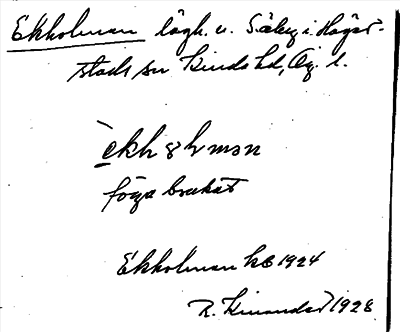 Ekholman lägh. u. Säby i Häger-
stads sn Kinds hd, Ög. l.
èkhọlmən
föga brukat
Ekholman kb 1924
R. Kinander 1928